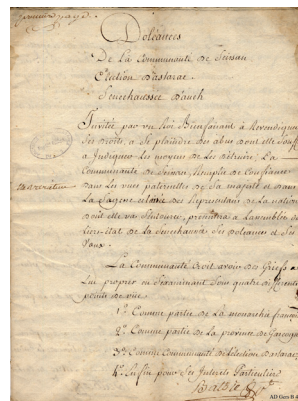 Doléances
De la Communauté de Seissan
Election D'astarac.
Senechaussée D'auch
Invitée par un Roi Bienfaisant à Revendiquer
Ses droits, à Se plaindre des abus dont elle Souffre
à Indiquer Les moyens de Les détruire; La
Communauté de Seissan, Remplie de Confiance
Dans Les vues paternelles de Sa majesté et dans
La Sagesse des Representans de la nation
dont elle va S'entourer, présentera à L'assemblée du
tiers-état de La Senechaussée Ses doleances et Ses
Vœux.
La Communauté Croit avoir des Griefs à
Lui proposer en S'examinant Sous quatre differents
points de vue
1° Comme partie de la monarchie françoise
2° Comme partie de la province de Gascogne
3° Comme Communauté de L'élection D'astarac
4° Enfin pour Ses Interets Particuliers
AD Gers B 4